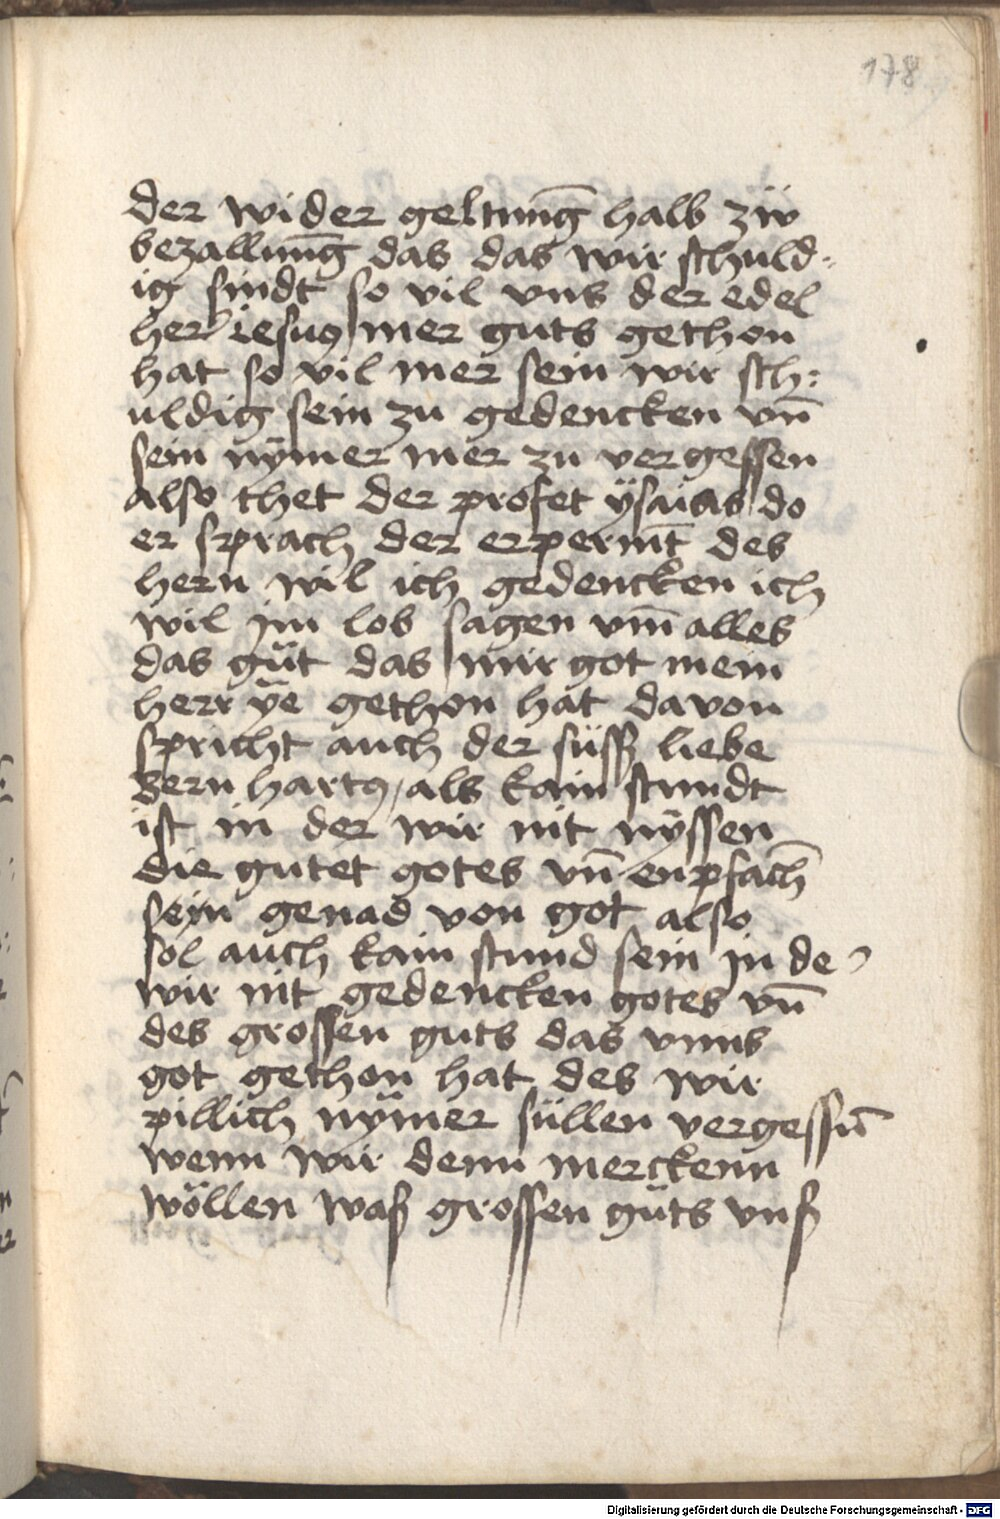 178
der wider geltunḡ halb zw̋
bezallunḡ das das wir schuld⸗
ig sindt so vil vns der edel
her iesus mer guts gethon
hat so vil mer sein wir sch⸗
uldig sein zu gedencken vn̄
sein nÿmer mer zu vergessen
also thet der profet ÿsaias do
er sprach der erpermt̄ des
hern wil ich gedencken ich
wil jm lob sagen vm̄ alles
das gůt das mir got mein
herr ÿe gethon hat davon
spricht auch der süsß liebe
Bernhartꝰ / als kain stundt
ist in der wir nit nÿssen
die gutet gotes vn̄ enpfach̄
sein genad von got also
sol auch kain stund sein jn der
wir nit gedencken gotes vn̄
des grossen guts das vnns
got gethon hat des wir
pillich nÿmer süllen vergessn̄
wenn wir denn merckenn
wöllen waß grossen gůts vnß
Digitalisierung gefördert durch die Deutsche Forschungsgemeinschaft - DFG